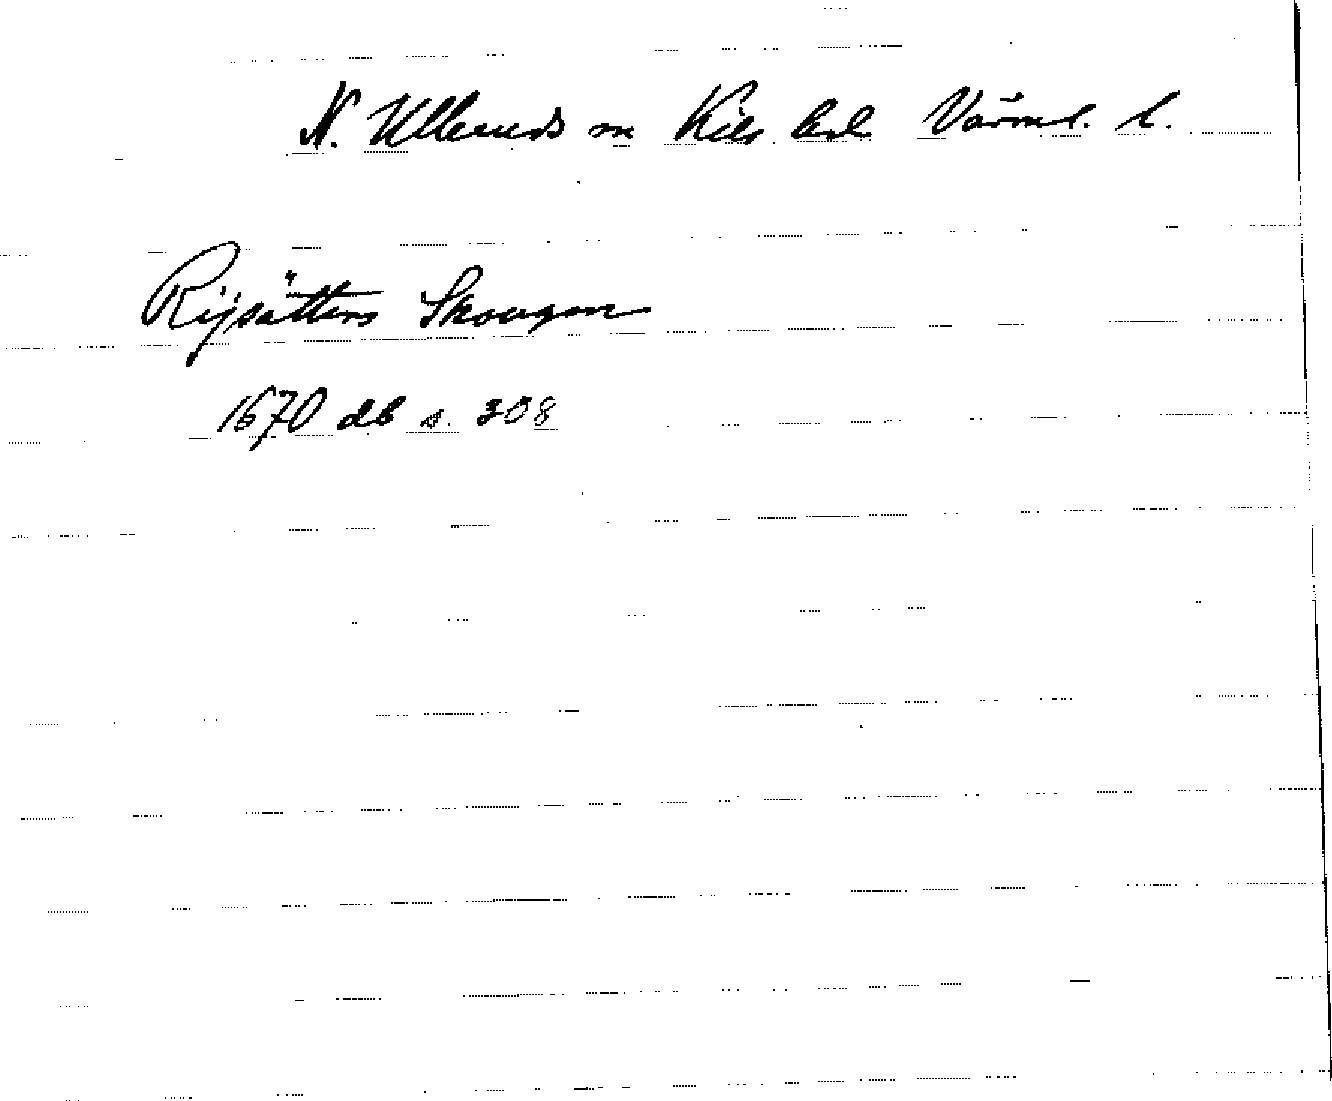 N. Ulleruds sn Kils hd Värml. l.
Rijsätters Skougen
1670 db s. 308